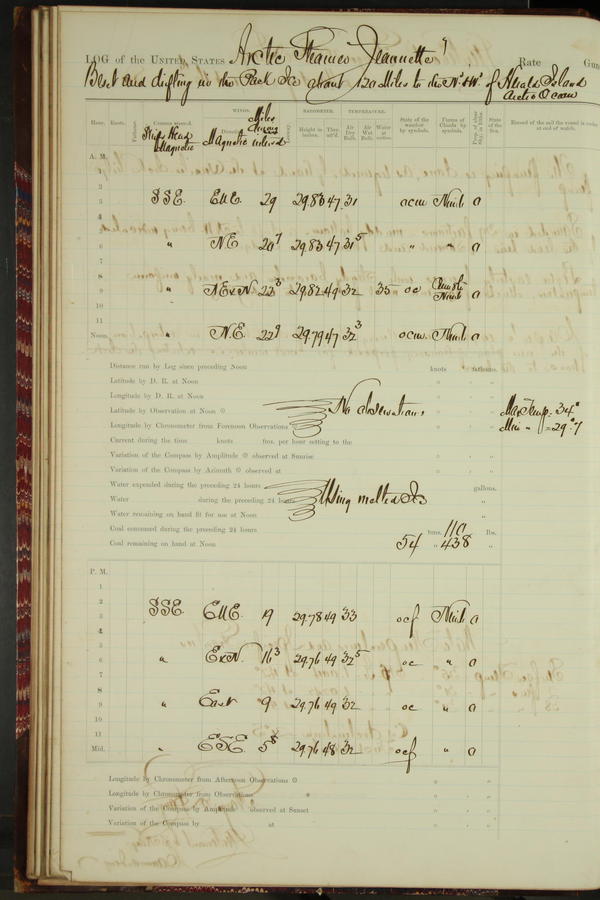 LOG of the United States Arctic Steamer Jeannette Rate Gun
Beset and drifting in the Pack Ice about 120 Miles to the N. & W. of Herald Island
Arctic Ocean
Hour. Knots. Fathoms. Courses steered. WINDS. BAROMETER. TEMPERATURE. State of the weather by symbols. Forms of Clouds by symbols. Prop. of clear Sky, in 10ths. State of the Sea. Record of the sail the vessel is under at end of watch.
Ship's Head Magnetic Magnetic Miles Height in inches. Ther. att'd. Air Dry Bulb. Air Wet Bulb. Water at surface.
A. M.
1
2
3 SSE. ENE. 29 29.83 47 31 ocm Nimb 0
4
5
6 " NE. 20⁷ 29.83 47 31⁵ " " 0
7
8
9 " NExN. 22³ 29.82 49 32 35 oc Cum St Nimb 0
10
11
Noon " N.E. 22⁹ 29.79 47 32³ ocm. Nimb. 0
Distance run by Log since preceding Noon knots fathoms.
Latitude by D. R. at Noon ° ' "
Longitude by D. R. at Noon ° ' "
Latitude by Observation at Noon ☉ No observations Max Temp. = 34°
Longitude by Chronometer from Forenoon Observations Min " = 29°.7
Current during the time knots fms. per hour setting to the
Variation of the Compass by Amplitude ☉ observed at Sunrise ° ' "
Variation of the Compass by Azimuth ☉ observed at ° ' "
Water expended during the preceding 24 hours gallons.
Water during the preceding 24 hours Using melted Ice "
Water remaining on hand fit for use at Noon "
Coal consumed during the preceding 24 hours tons. 110 lbs.
Coal remaining on hand at Noon 54 " 438 "
P. M.
1
2
3 SSE. ENE. 19 29.78 49 33 ocf Nimb 0
4
5
6 " ExN. 16³ 29.76 49 32⁵ oc " 0
7
8
9 " East 9 29.76 49 32 oc " 0
10
11
Mid. " ESE. 5⁸ 29.76 48 32 ocf " 0
Longitude by Chronometer from Afternoon Observations ☉ ° ' "
Longitude by Chronometer from Observations * ° ' "
Variation of the Compass by Amplitude observed at Sunset ° ' "
Variation of the Compass by at ° ' "